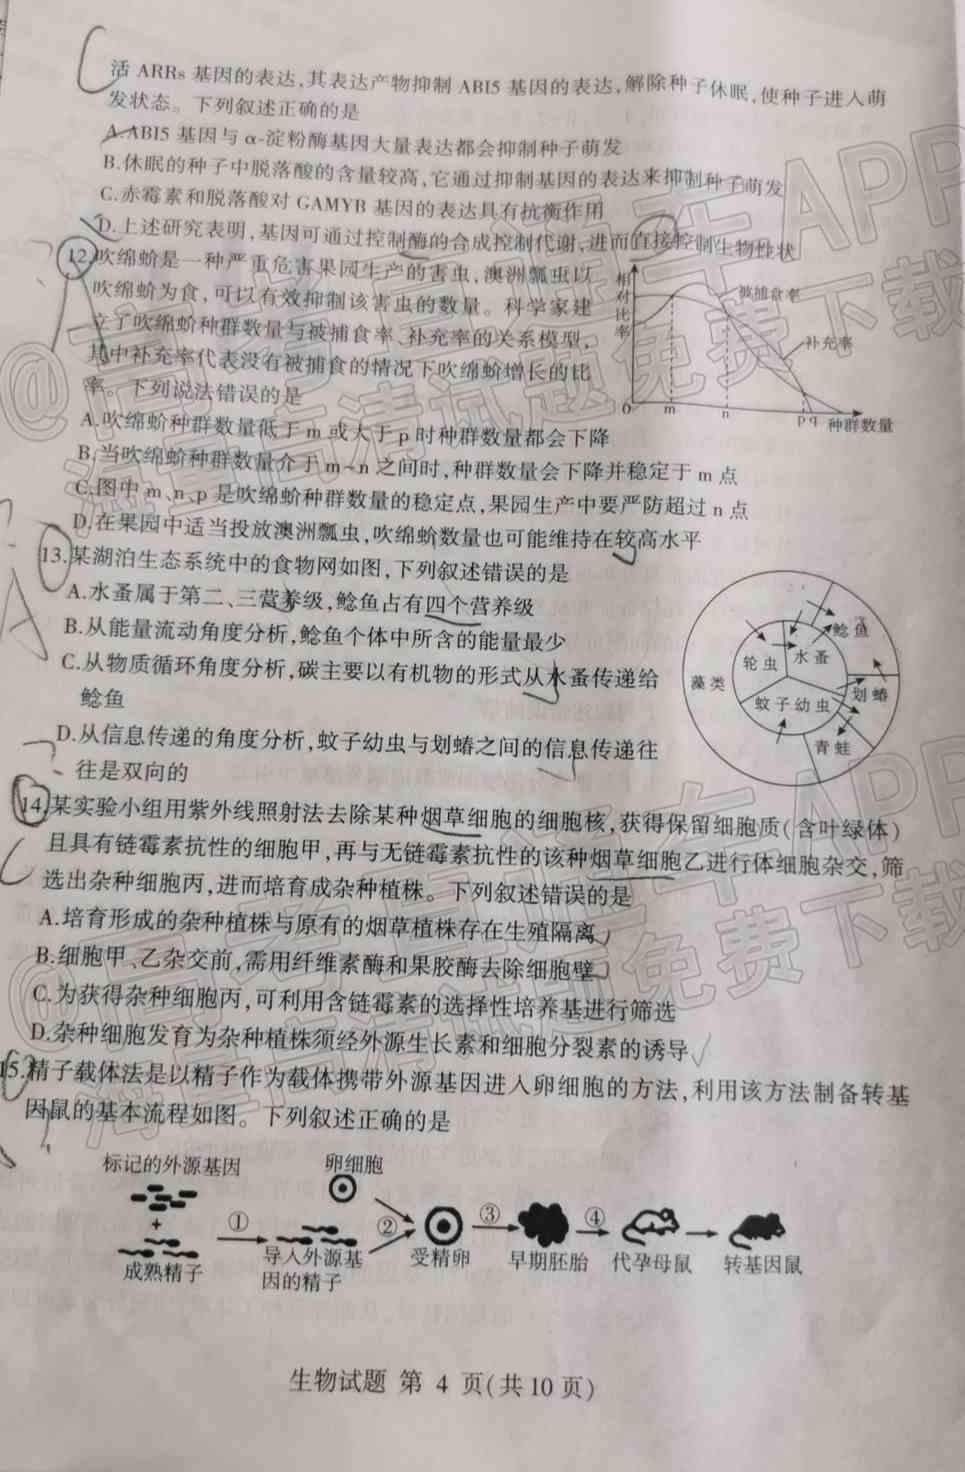 活 ARRs 基因的表达,其表达产物抑制 ABI5 基因的表达,解除种子休眠,使种子进入萌
发状态。下列叙述正确的是
A.ABI5 基因与 α-淀粉酶基因大量表达都会抑制种子萌发
B.休眠的种子中脱落酸的含量较高,它通过抑制基因的表达来抑制种子萌发
C.赤霉素和脱落酸对 GAMYB 基因的表达具有抗衡作用
D.上述研究表明,基因可通过控制酶的合成控制代谢,进而直接控制生物性状
12.吹绵蚧是一种严重危害果园生产的害虫,澳洲瓢虫以
吹绵蚧为食,可以有效抑制该害虫的数量。科学家建
立了吹绵蚧种群数量与被捕食率、补充率的关系模型,
其中补充率代表没有被捕食的情况下吹绵蚧增长的比
率。下列说法错误的是
相对比率
被捕食率
补充率
O m n p q 种群数量
A.吹绵蚧种群数量低于 m 或大于 p 时种群数量都会下降
B.当吹绵蚧种群数量介于 m~n 之间时,种群数量会下降并稳定于 m 点
C.图中 m、n、p 是吹绵蚧种群数量的稳定点,果园生产中要严防超过 n 点
D.在果园中适当投放澳洲瓢虫,吹绵蚧数量也可能维持在较高水平
13.某湖泊生态系统中的食物网如图,下列叙述错误的是
A.水蚤属于第二、三营养级,鲶鱼占有四个营养级
B.从能量流动角度分析,鲶鱼个体中所含的能量最少
C.从物质循环角度分析,碳主要以有机物的形式从水蚤传递给
鲶鱼
D.从信息传递的角度分析,蚊子幼虫与划蝽之间的信息传递往
往是双向的
藻类
轮虫
水蚤
鲶鱼
蚊子幼虫
划蝽
青蛙
14.某实验小组用紫外线照射法去除某种烟草细胞的细胞核,获得保留细胞质(含叶绿体)
且具有链霉素抗性的细胞甲,再与无链霉素抗性的该种烟草细胞乙进行体细胞杂交,筛
选出杂种细胞丙,进而培育成杂种植株。下列叙述错误的是
A.培育形成的杂种植株与原有的烟草植株存在生殖隔离
B.细胞甲、乙杂交前,需用纤维素酶和果胶酶去除细胞壁
C.为获得杂种细胞丙,可利用含链霉素的选择性培养基进行筛选
D.杂种细胞发育为杂种植株须经外源生长素和细胞分裂素的诱导
15.精子载体法是以精子作为载体携带外源基因进入卵细胞的方法,利用该方法制备转基
因鼠的基本流程如图。下列叙述正确的是
标记的外源基因
卵细胞
+
① ② ③ ④
成熟精子
导入外源基
因的精子
受精卵
早期胚胎
代孕母鼠
转基因鼠
生物试题 第 4 页(共 10 页)